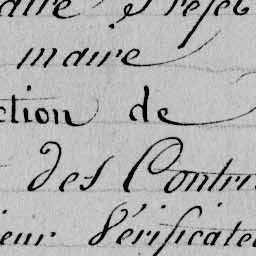 aire Préfet
maire
ction de
des Contri
ieur Vérificate